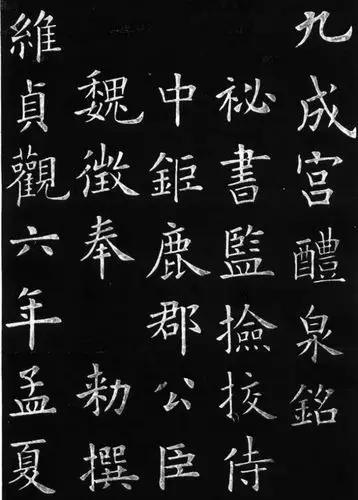 九成宮醴泉銘
祕書監撿挍侍
中鉅鹿郡公臣
魏徵奉 勅撰
維貞觀六年孟夏